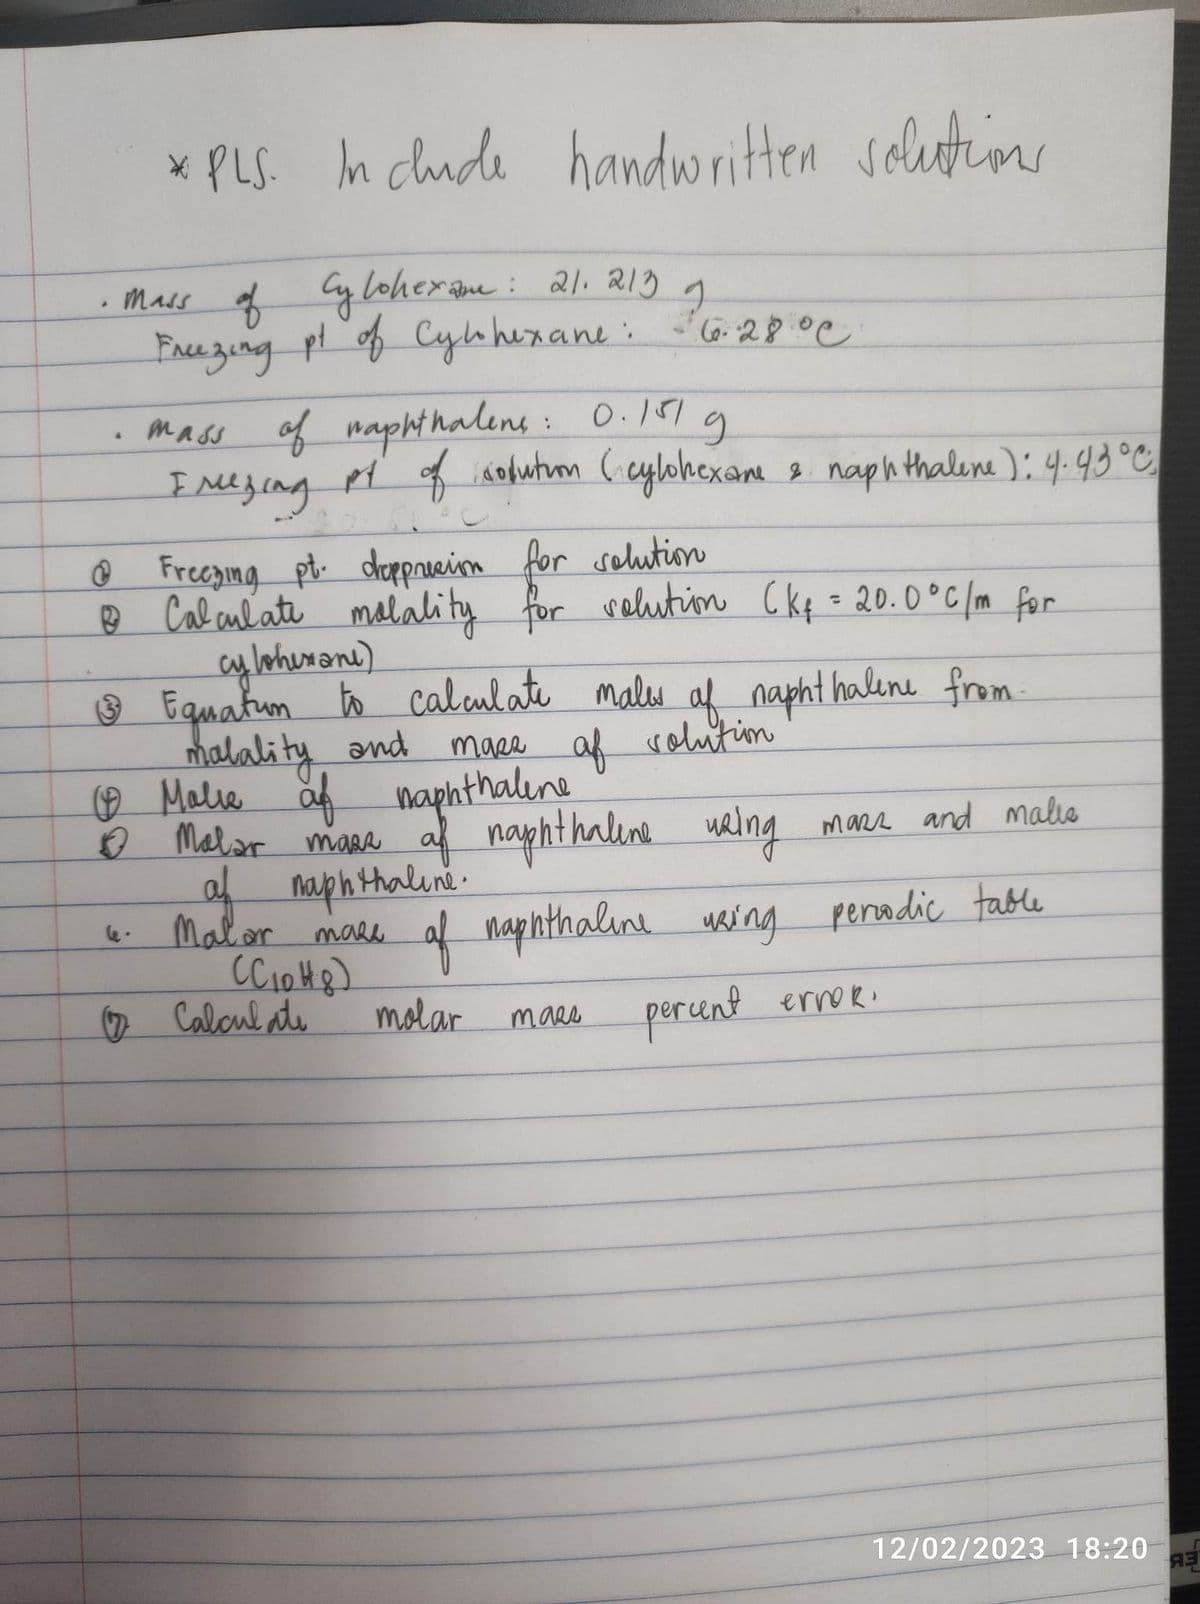 * PLS. Include handwritten solutions
. Mass of Cylohexane: 21. 213 g
Freezing pt of Cylohexane: 6.28 °C
. mass of naphthalene: 0.151 g
Freezing pt of solution (cylohexane & naphthalene): 4.43°C
① Freezing pt. deppression for solution
② Calculate molality for solution (kf = 20.0°C/m for
cylohexane)
③ Equation to calculate moles of naphthalene from
molality and mass of solution
④ Moles of naphthalene
⑤ Molar mass of naphthalene using mass and moles
of naphthalene.
6. Molar mass of naphthalene using periodic table
(C10H8)
⑦ Calculate molar mass percent error.
12/02/2023 18:20